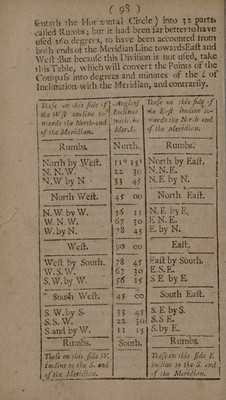 ( 98 )
senteth the Horizontal Circle) into 32 parts,
called Rumbs; but it had been far better to have
used 360 degrees, to have been accounted from
both ends of the Meridian Line towards East and
West: But because this Division is not used, take
this Table, which will convert the Points of the
Compass into degrees and minutes of the ∠ of
Inclination with the Meridian, and contrarily.
These on this side of the West incline towards the North-end of the Meridian. | Angles of Inclinat. with the Mer.L. | These on this side of the East incline towards the North end of the Meridian.
Rumbs. | North. | Rumbs.
North by West. | 11° 15' | North by East.
N. N. W. | 22 30 | N. N. E.
N. W by N | 33 45 | N. E by N.
North West. | 45 00 | North East.
N. W by W. | 56 15 | N. E by E,
W. N. W. | 67 30 | E. N. E.
W. by N. | 78 45 | E. by N.
West. | 90 00 | East.
West by South. | 78 45 | East by South.
W. S. W. | 67 30 | E. S. E.
S. W. by W. | 56 15 | S E by E.
South West. | 45 00 | South East.
S. W. by S. | 33 45 | S. E by S.
S. S. W. | 22 30 | S. S E.
S. and by W. | 11 15 | S. by E.
Rumbs. | South. | Rumbs.
These on this side W. incline to the S. end of the Meridian. | These on this side E incline to the S. end of the Meridian.